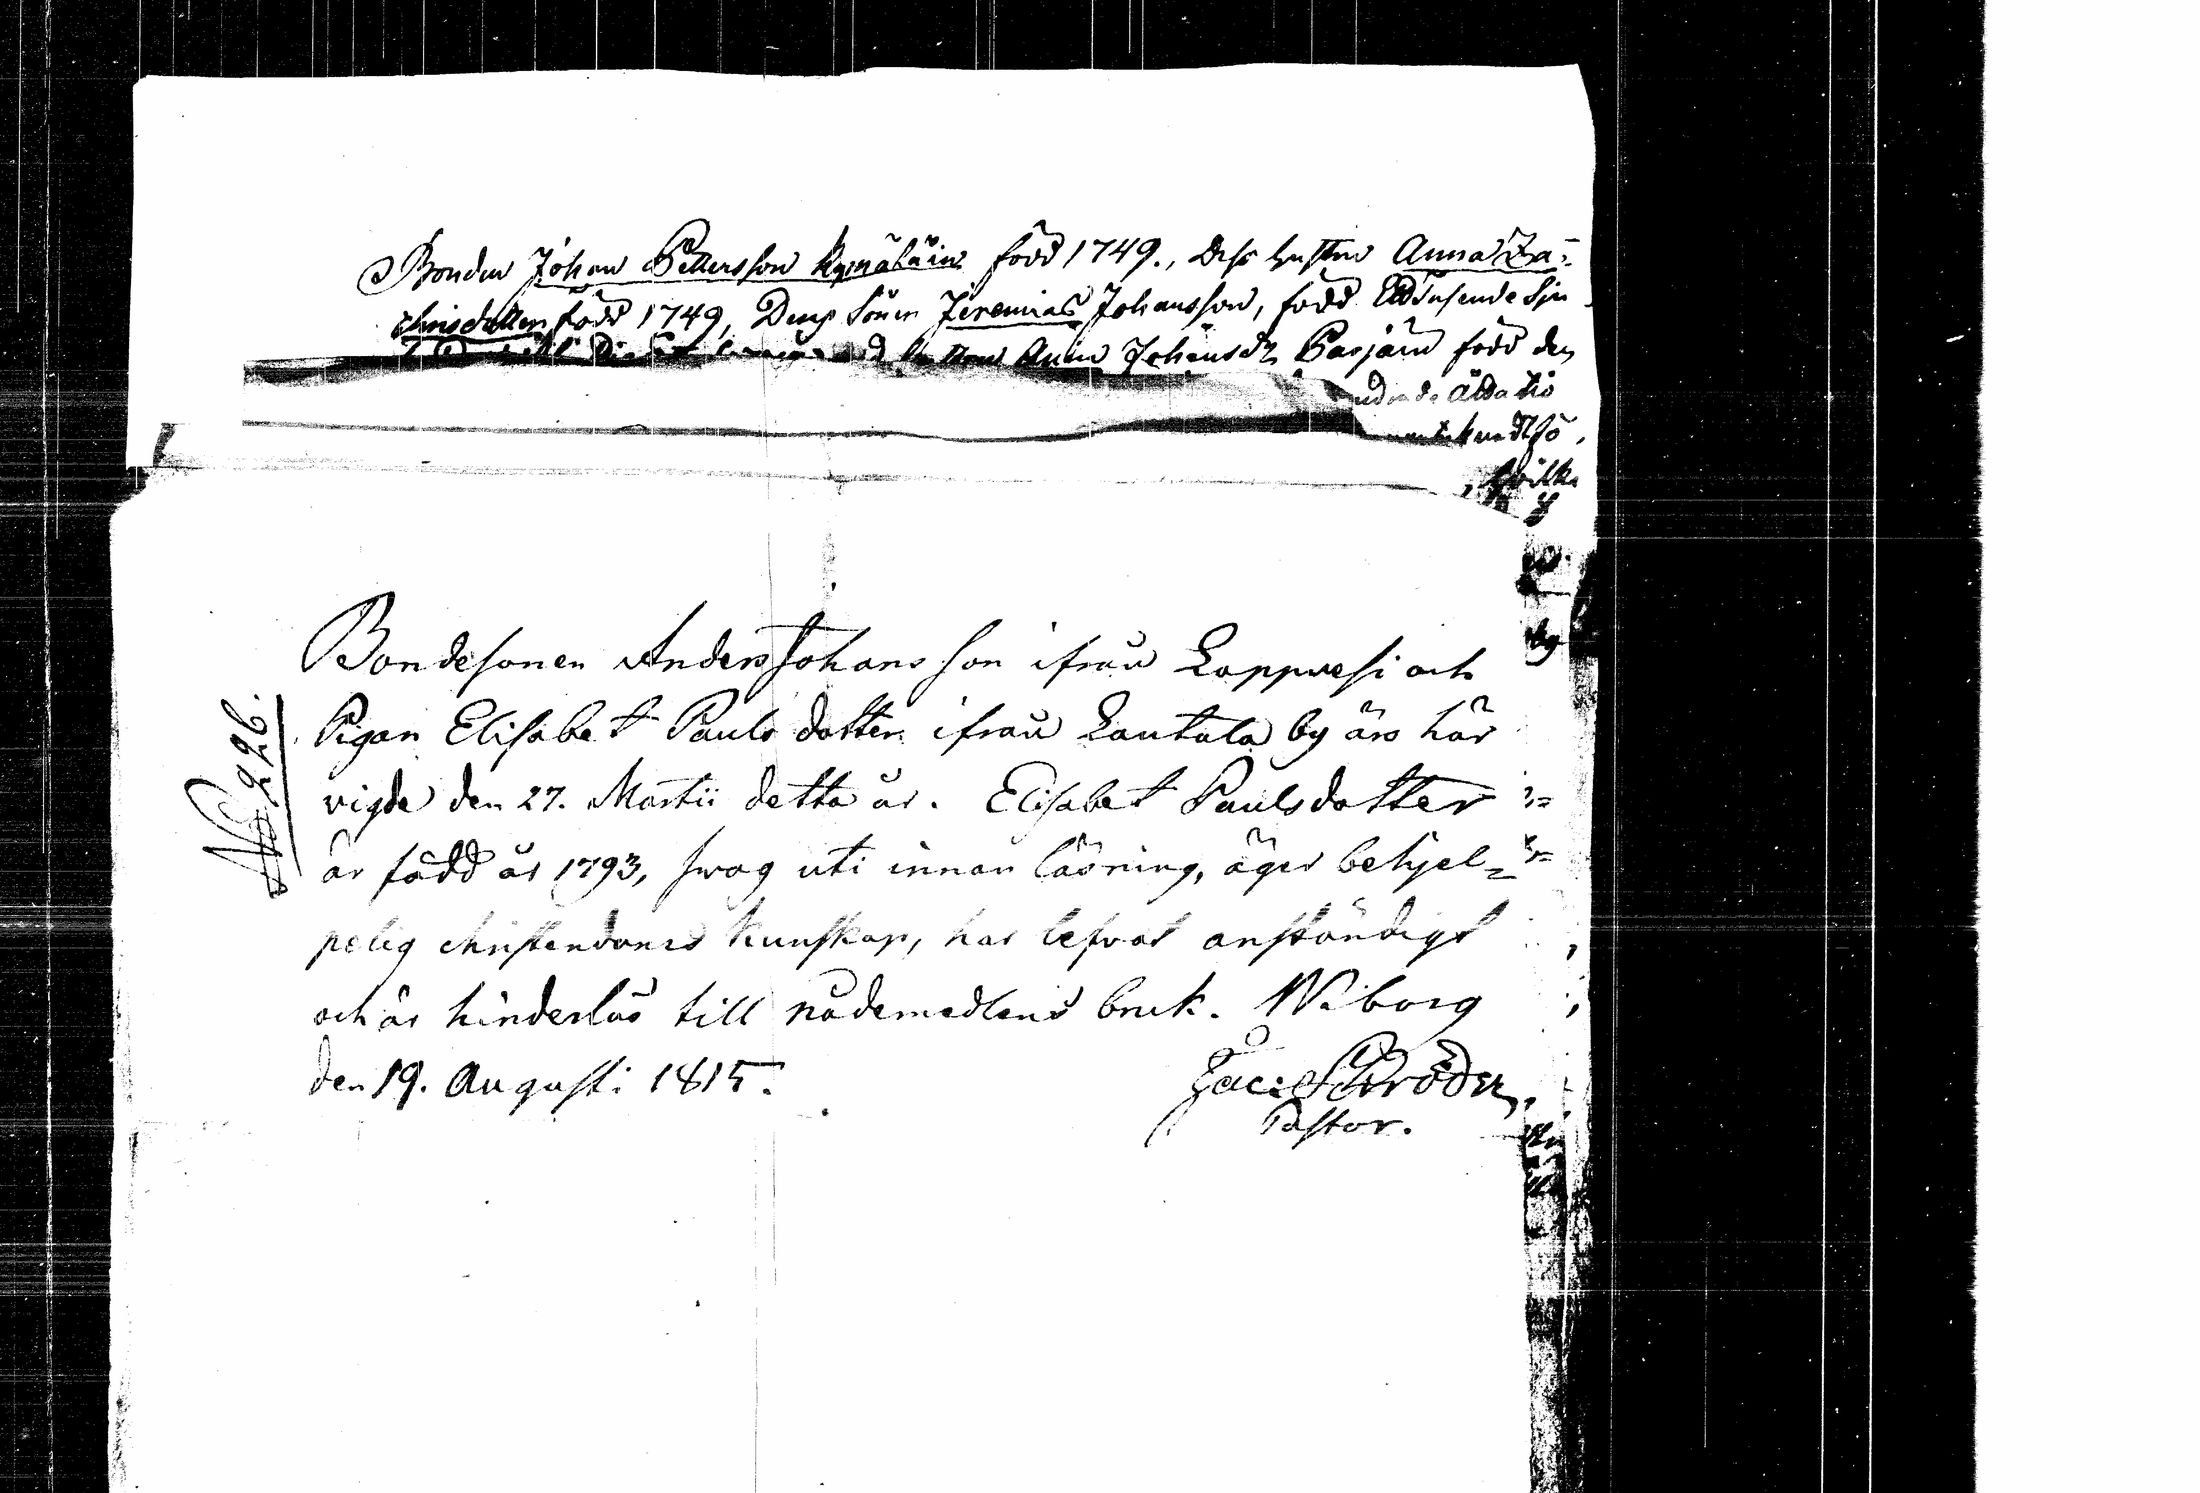 Bonden Johan Pettersson Kymäläin född 1749., dess hustru Anna Za-
chrisdotter född 1749, Dess Sonen Jeremias Johansson, född Ettusende sju
Anna Johansdr Parjain född den
åtta tio
hundt sjö
, hvilka
by
No 226.
Bondesonen Anders Johansson ifrån Lappvesi och
Pigan Elisabet Paulsdotter ifrån Lautala by äro här
vigde den 27. Martii detta år. Elisabet Paulsdotter
är född år 1793, svag uti innan läsning, äger behjel=
pelig christendoms kunskap, har lefvat anständigt
och är hinderlös till nådemedlens bruk. Wiborg
den 19. Augusti 1815.
Jac: Schröder,
Pastor.